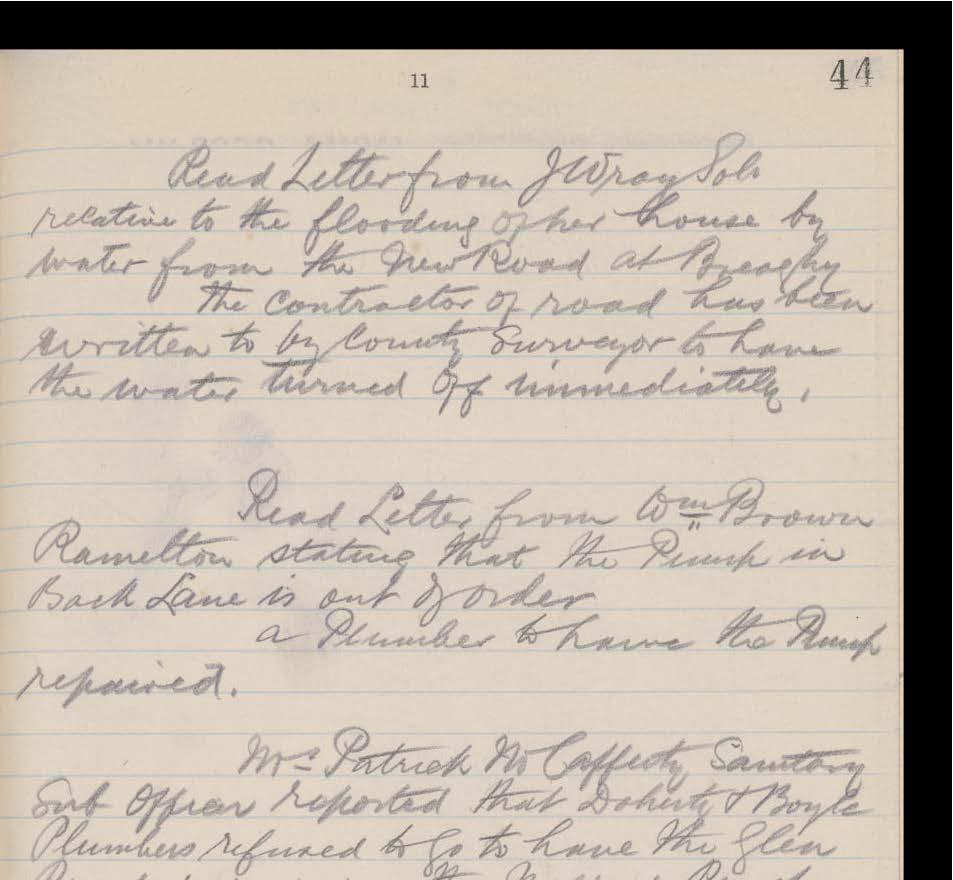 11
44
Read Letter from J Wray Solr
relative to the flooding of her house by
water from the New Road at Breaghy
the contractor of road has been
written to by County Surveyor to have
the water turned off immediately.
Read Letter from Wm Brown
Ramelton stating that the Pump in
Back Lane is out of order
a Plumber to have the Pump
repaired.
Patrick Mc Cafferty Sanitary
Sub Officer reported that Doherty & Boyle
Plumbers refused to go to have the Glen